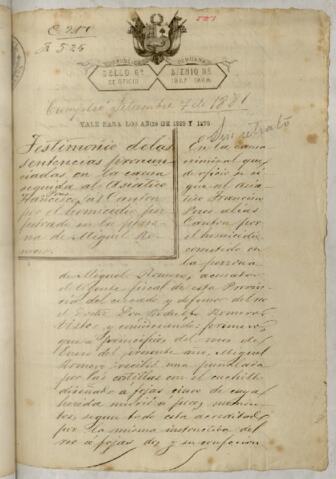 C. 280
523
F. 526
REPUBLICA PERUANA
SELLO 6º
DE OFICIO
BIENIO DE
1867 1868
Cumplió Setiembre 7 de 1881
VALE PARA LOS AÑOS DE 1869 Y 1870
Sin retrato
Testimonio de las
sentencias pronun-
ciadas en la causa
seguida al Asiatico
Francisco Pros (a) Canton
por el homicidio per-
petrado en la perso-
na de Miguel Ro-
mero.
En la causa
criminal que
de oficio se si
gue al asia-
tico Francisco
Pros alias
Canton por
el homicidio
cometido en
la persona
de Miguel Romero, acusador
el Ajente fiscal de esta Provin-
cia del cercado y defensor del reo
el Doctor Don Romero
Visto; y considerando primero:
que a principios del mes de
Enero del presente año, Miguel
Romero recibió una puñalada
por las costillas con el cuchillo
diseñado a fojas cinco de cuya
herida murió a pocos momen-
tos, segun todo está acreditado
por la misma instructiva del
reo a fojas dos y su confesion